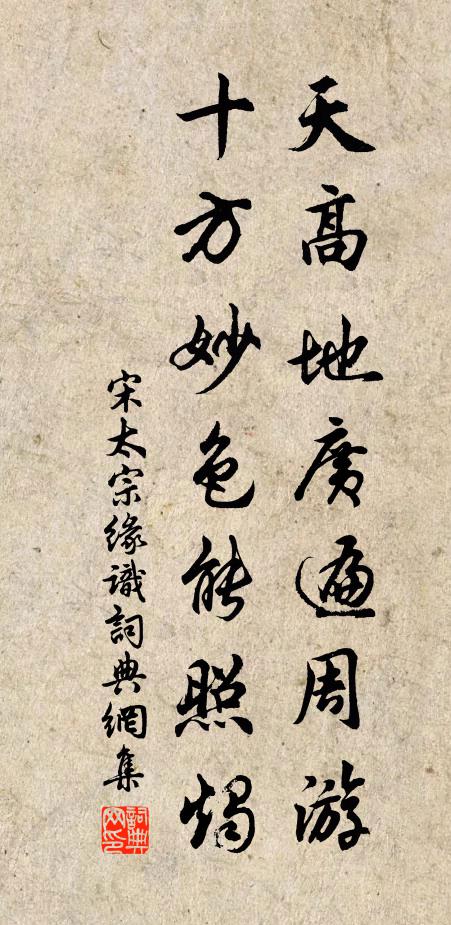 天高地廣遍周游
十方妙色能照燭
宋太宗緣識詞典網集
詞典
网印